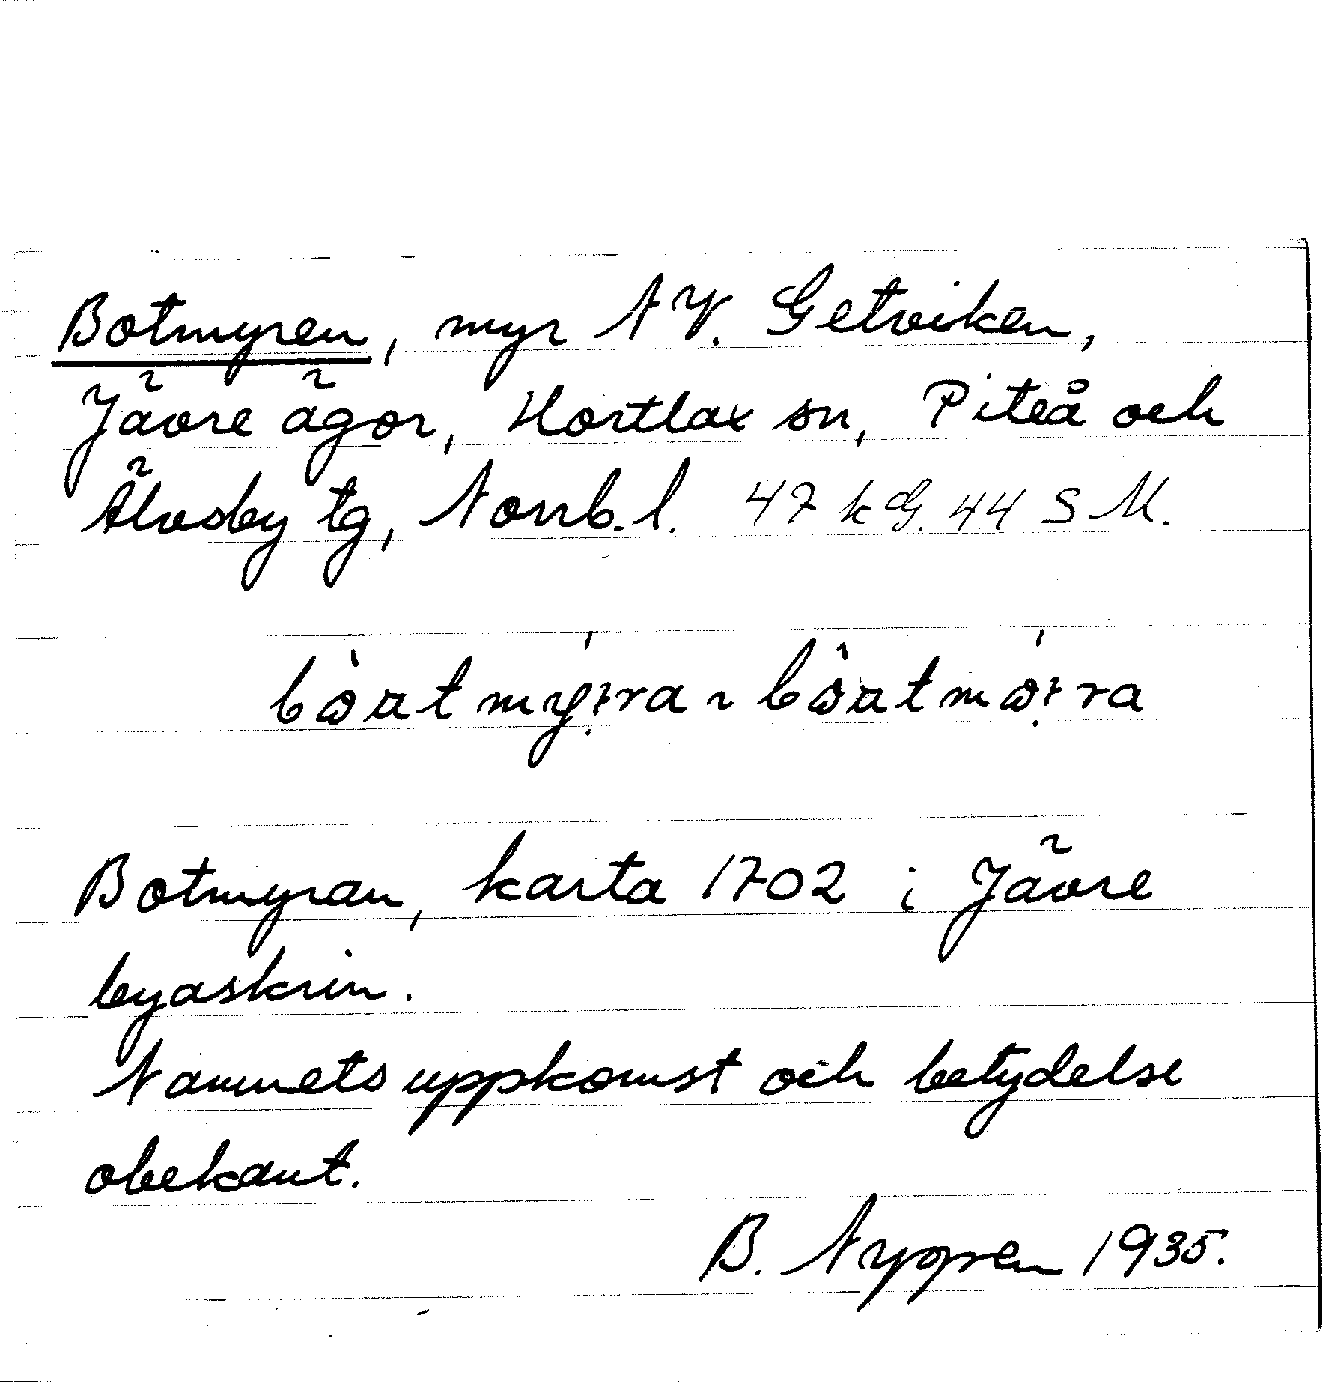 Botmyren, myr NV. Getviken,
Jävre ägor, Hortlax sn, Piteå och
Älvsby tg, Norrb. l. 47 kG. 44 S M.
Botmyran, karta 1702 i Jävre
byaskrin.
Namnets uppkomst och betydelse
obekant.
B. Nygren 1935.